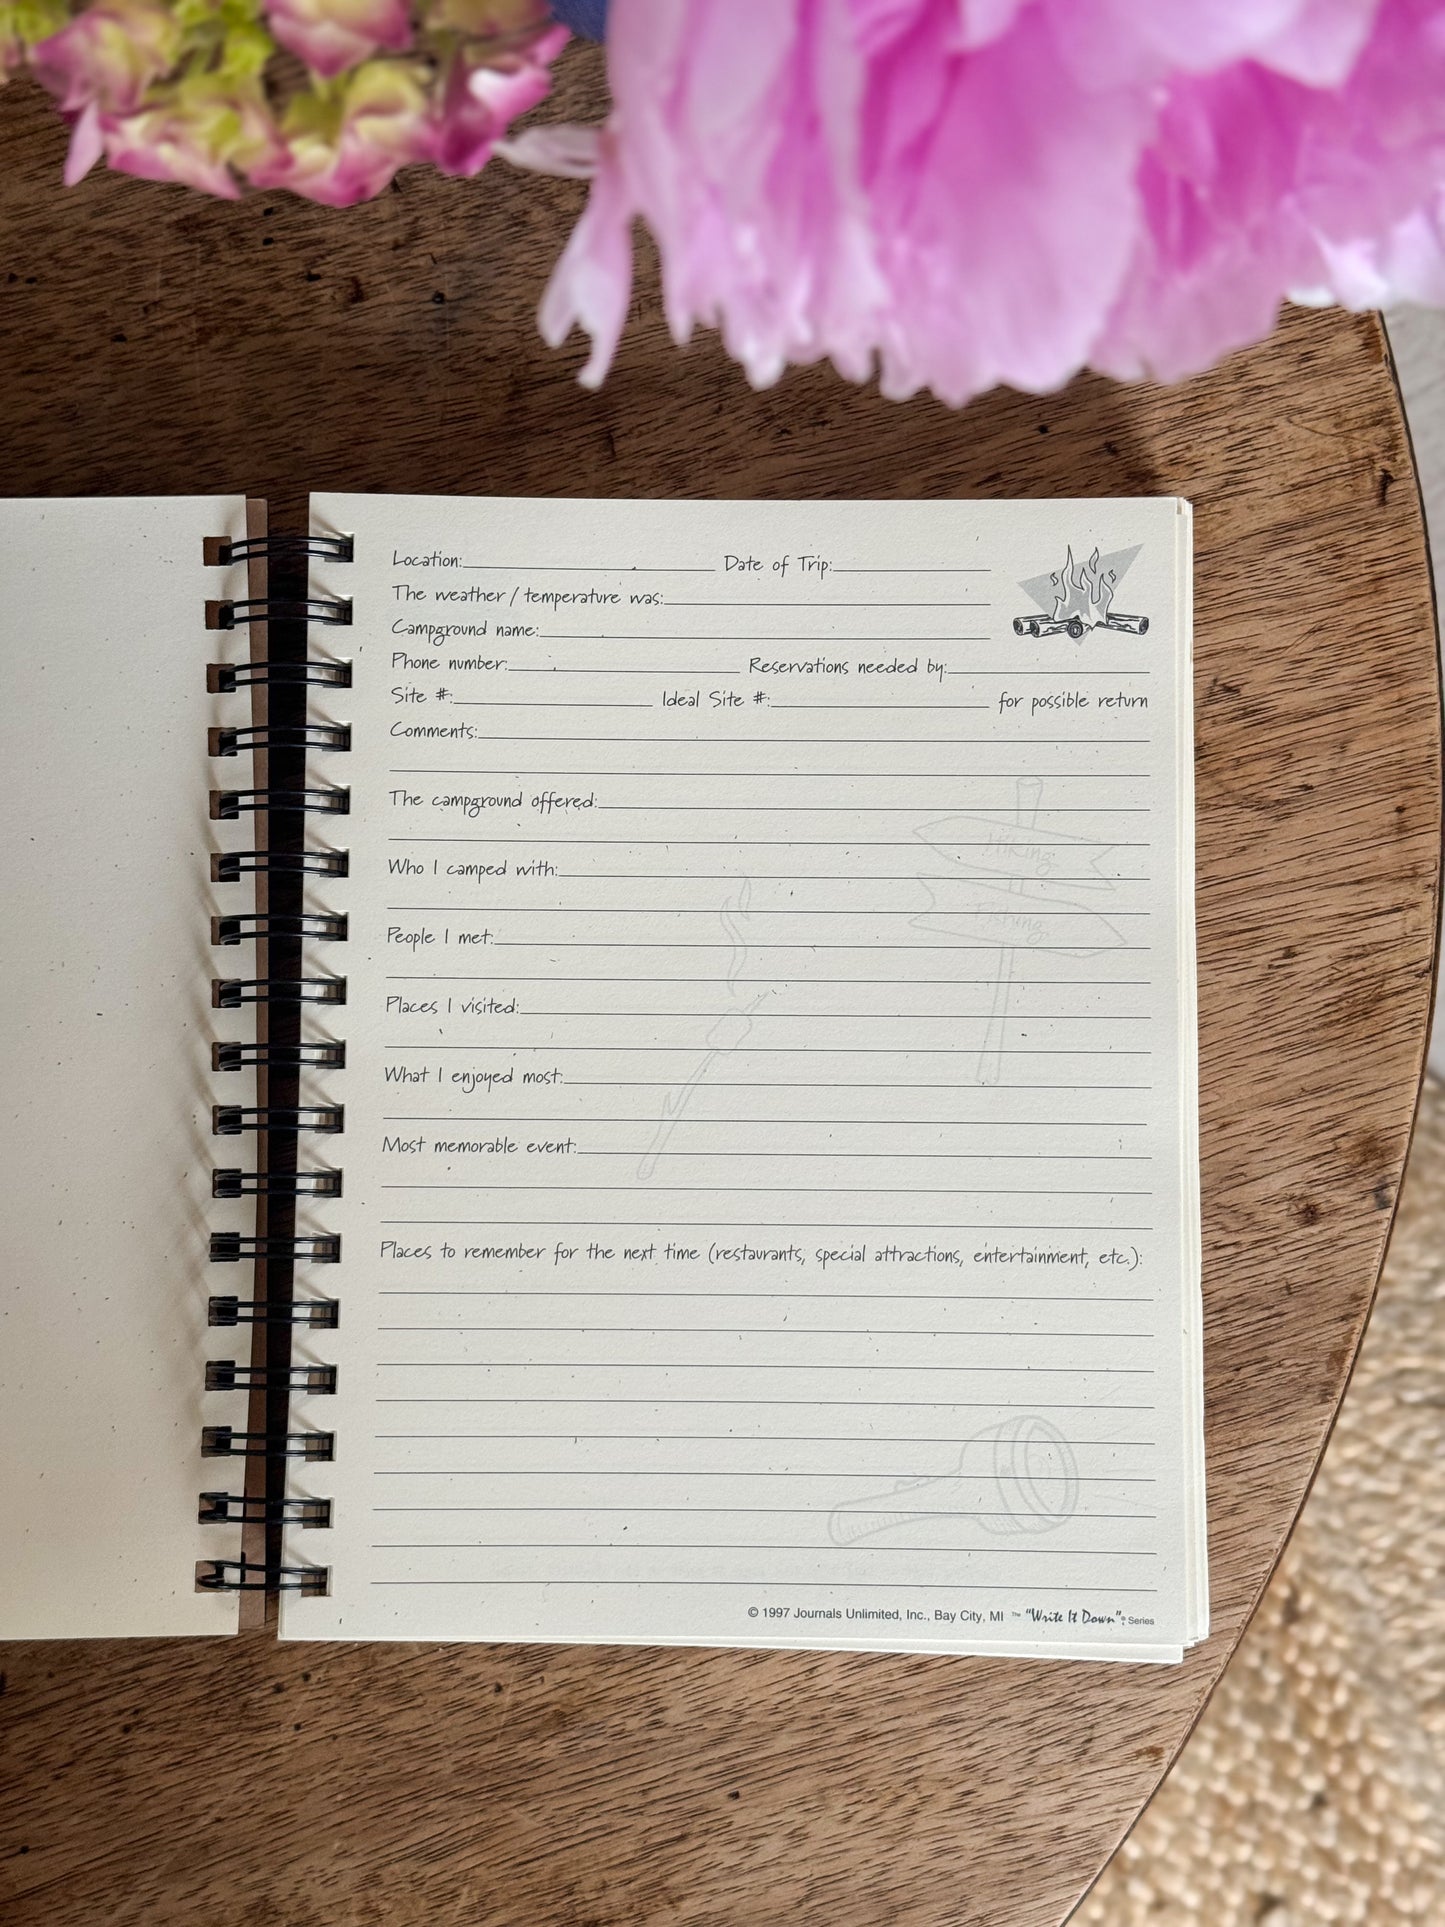 Location: Date of Trip:
The weather / temperature was:
Campground name:
Phone number: Reservations needed by:
Site #: Ideal Site #: for possible return
Comments:
The campground offered:
Hiking
Who I camped with:
Fishing
People I met:
Places I visited:
What I enjoyed most:
Most memorable event:
Places to remember for the next time (restaurants, special attractions, entertainment, etc.):
© 1997 Journals Unlimited, Inc., Bay City, MI ™ "Write It Down"® Series